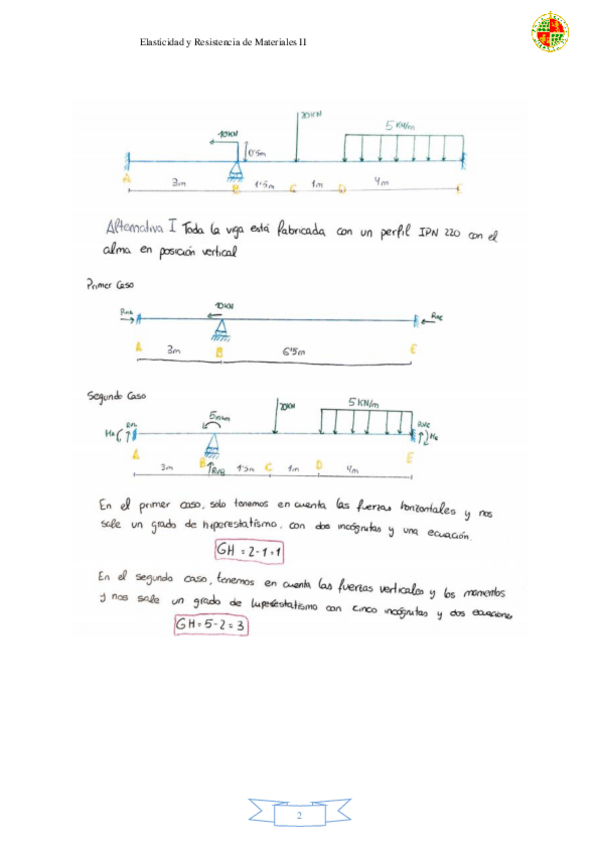 Elasticidad y Resistencia de Materiales II
20KN
5 KN/m
10KN
0'5m
A 3m B 1'5m C 1m D 4m E
Alternativa I Toda la viga está fabricada con un perfil IPN 220 con el
alma en posición vertical
Primer Caso
10KN
RHA RHE
A 3m B 6'5m E
Segundo Caso
20KN 5 KN/m
MA RVA RVE ME
A 3m B RVB 1'5m C 1m D 4m E
En el primer caso, solo tenemos en cuenta las fuerzas horizontales y nos
sale un grado de hiperestatismo, con dos incógnitas y una ecuación.
GH = 2-1 = 1
En el segundo caso, tenemos en cuenta las fuerzas verticales y los momentos
y nos sale un grado de hiperestatismo con cinco incógnitas y dos ecuaciones
GH = 5-2 = 3
2